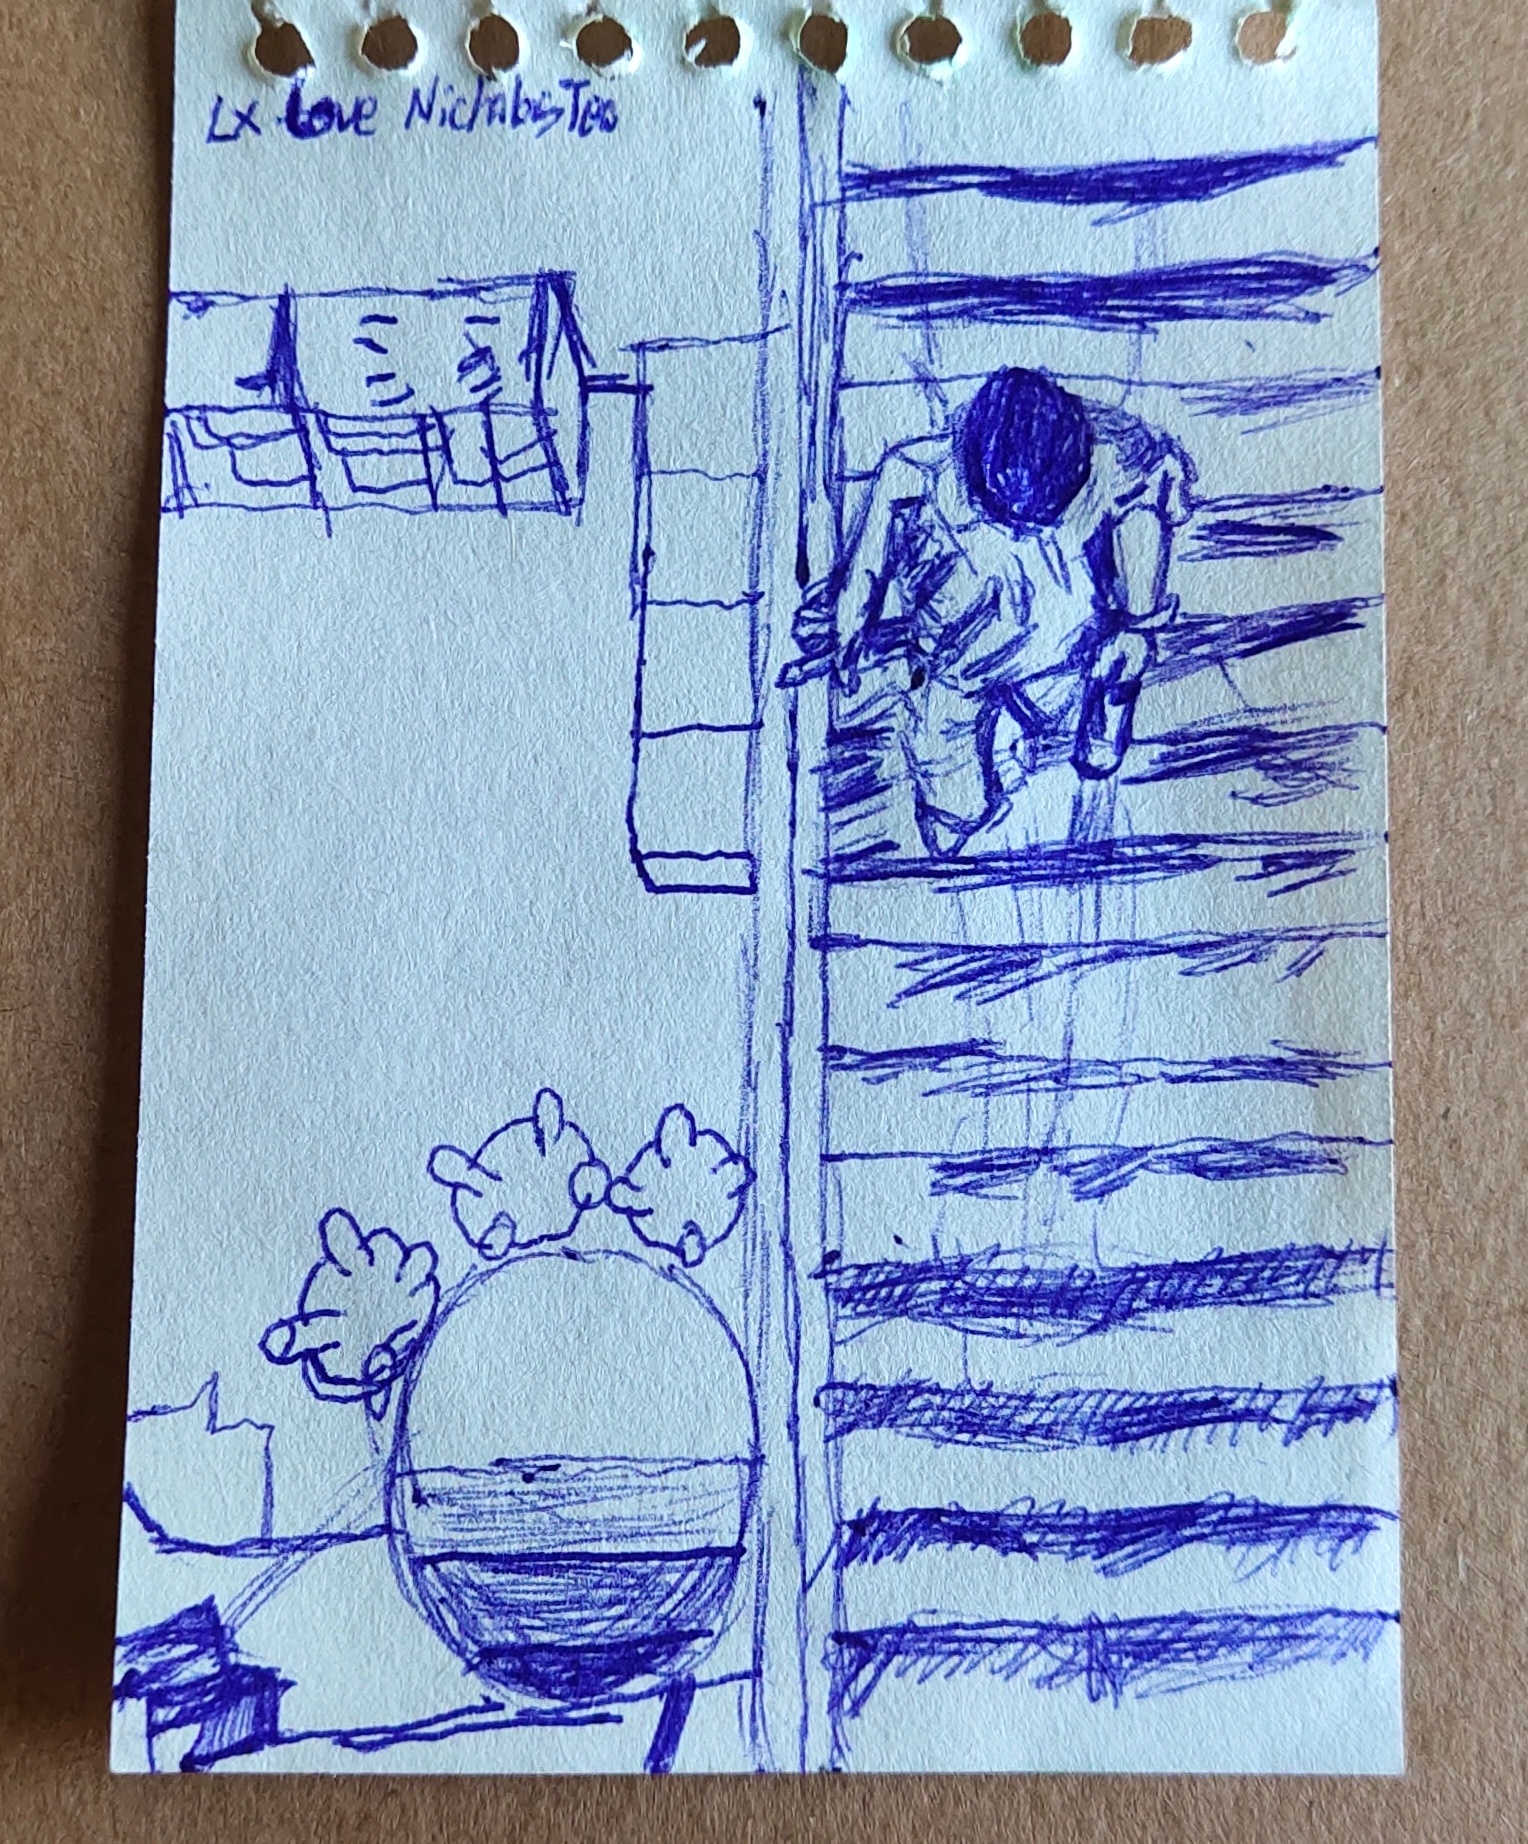 LX Love NicholasTeo